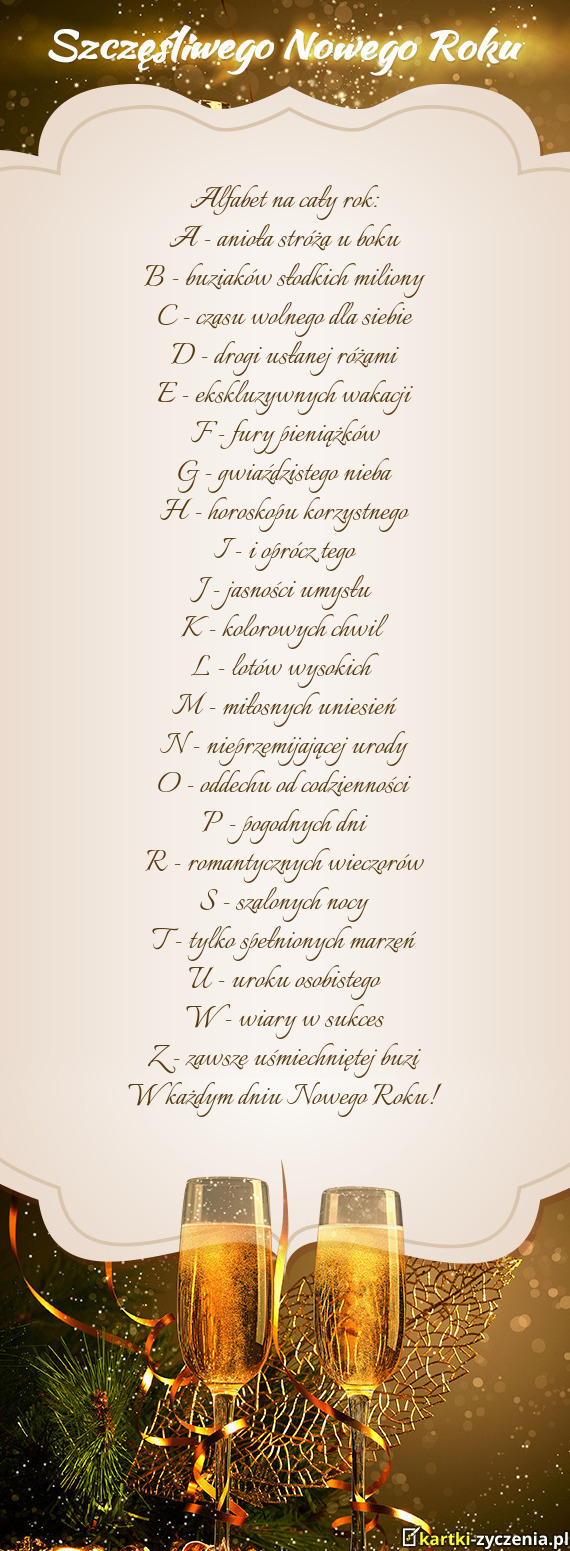 Szczęśliwego Nowego Roku
Alfabet na cały rok:
A - anioła stróża u boku
B - buziaków słodkich miliony
C - czasu wolnego dla siebie
D - drogi usłanej różami
E - ekskluzywnych wakacji
F - fury pieniążków
G - gwiaździstego nieba
H - horoskopu korzystnego
I - i oprócz tego
J - jasności umysłu
K - kolorowych chwil
L - lotów wysokich
M - miłosnych uniesień
N - nieprzemijającej urody
O - oddechu od codzienności
P - pogodnych dni
R - romantycznych wieczorów
S - szalonych nocy
T - tylko spełnionych marzeń
U - uroku osobistego
W - wiary w sukces
Z - zawsze uśmiechniętej buzi
W każdym dniu Nowego Roku!
kartki-zyczenia.pl